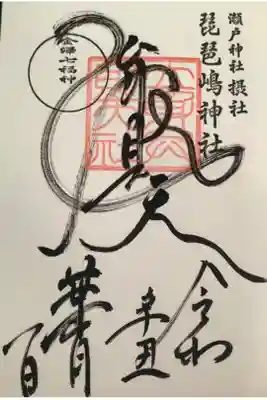 瀬戸神社摂社
琵琶嶋神社
金澤七福神
弁財天
令和
辛丑
葉月
百